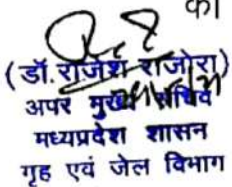 की
(डॉ. राजेश राजोरा)
अपर मुख्य सचिव
मध्यप्रदेश शासन
गृह एवं जेल विभाग